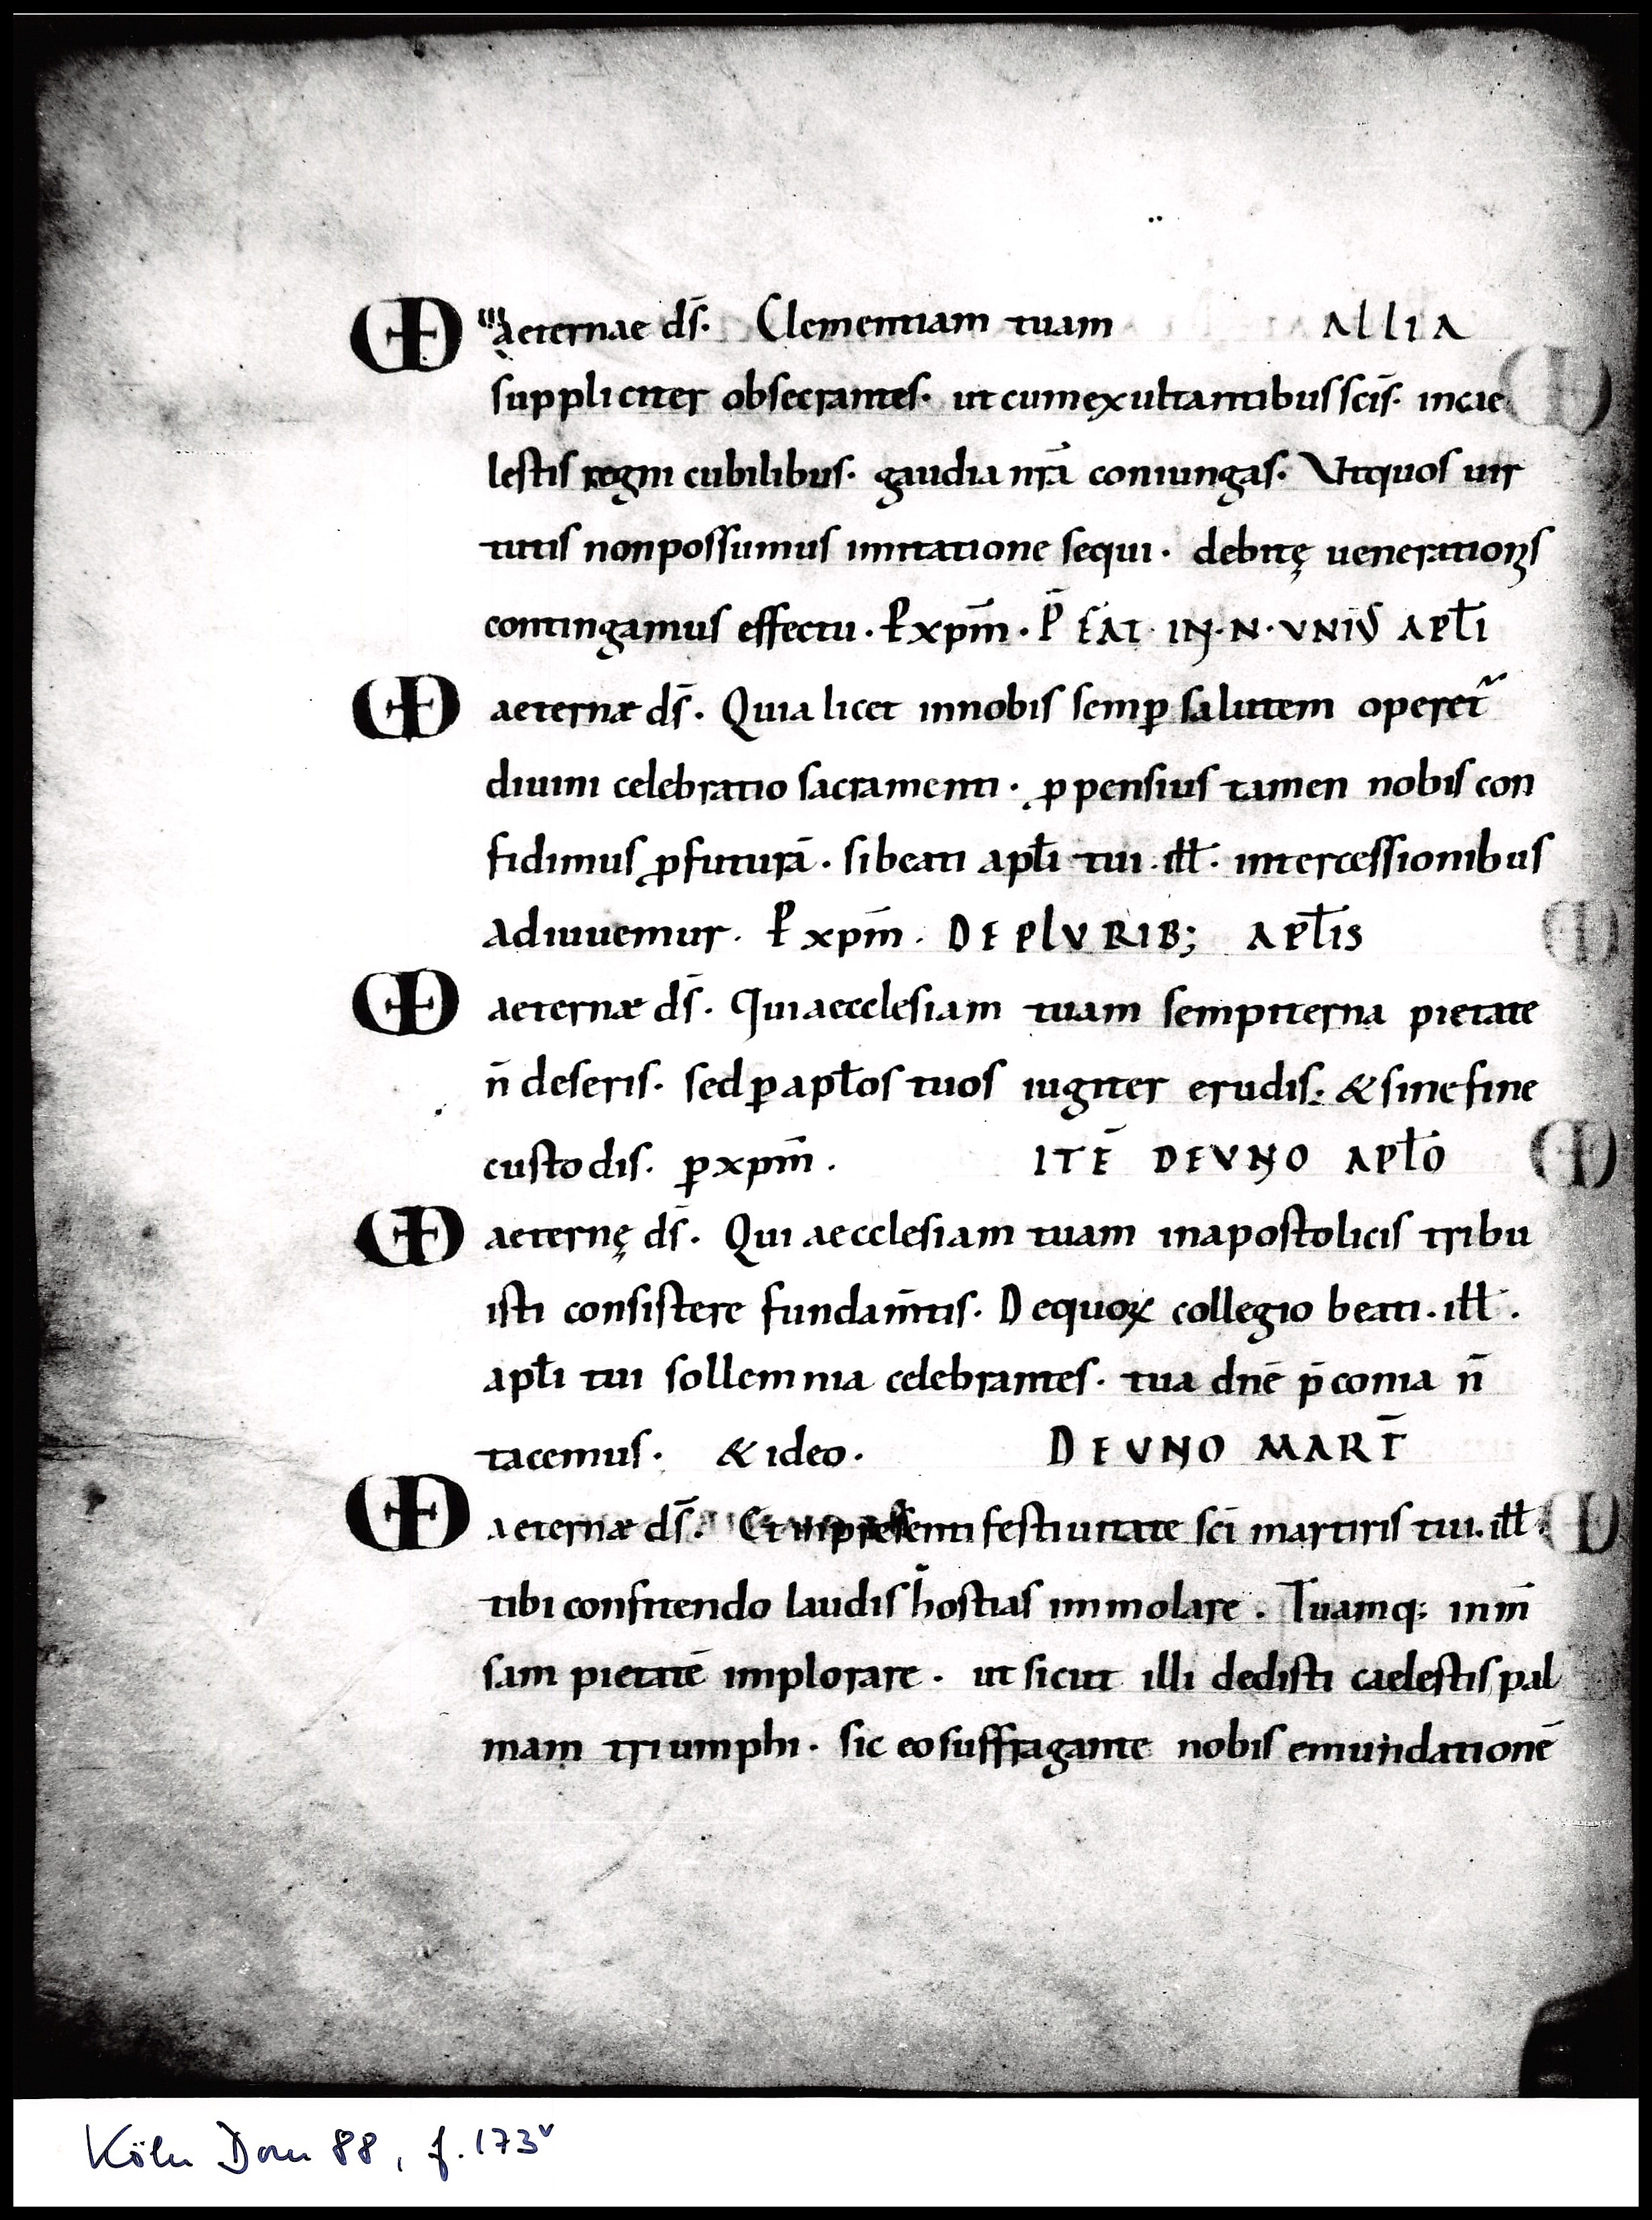 VD aeternae ds̄. Clementiam tuam ALLIA
suppliciter obsecrantes. ut cum exultantibus scīs. incae
lestis regni cubilibus. gaudia nrā coniungas. Vt quos uir
tutis non possumus imitatione sequi. debitę uenerationis
contingamus effectu. P̄ xpm̄. P̄FAT. IN. N. VNIVS APLI
VD aeternæ ds̄. Quia licet in nobis semꝑ salutem operet᷑
diuini celebratio sacramenti. ꝓpensius tamen nobis con
fidimus ꝓfuturā. si beati apłi tui .iłł. intercessionibus
adiuuemur. P̄ xpm̄. DE PLVRIB; APŁIS
VD aeternæ ds̄. Qui aecclesiam tuam sempiterna pietate
n̄ deseris. sed ꝑ apłos tuos iugiter erudis. & sine fine
custodis. ꝑ xpm̄. ITĒ DE VNO APŁO
VD aeternę ds̄. Qui aecclesiam tuam in apostolicis tribu
isti consistere fundam̄tis. De quoꝝ collegio beati .iłł.
apłi tui sollemnia celebrantes. tua dnē p̄conia n̄
tacemus. & ideo. DE VNO MART̄
VD aeternæ ds̄. Et in presenti festiuitate scī martiris tui .iłł.
tibi confitendo laudis hostias immolare. Tuamq; inm̄
sam pietatē implorare. ut sicut illi dedisti caelestis pal
mam triumphi. sic eo suffragante nobis emundationē
Köln Dom 88, f. 173v